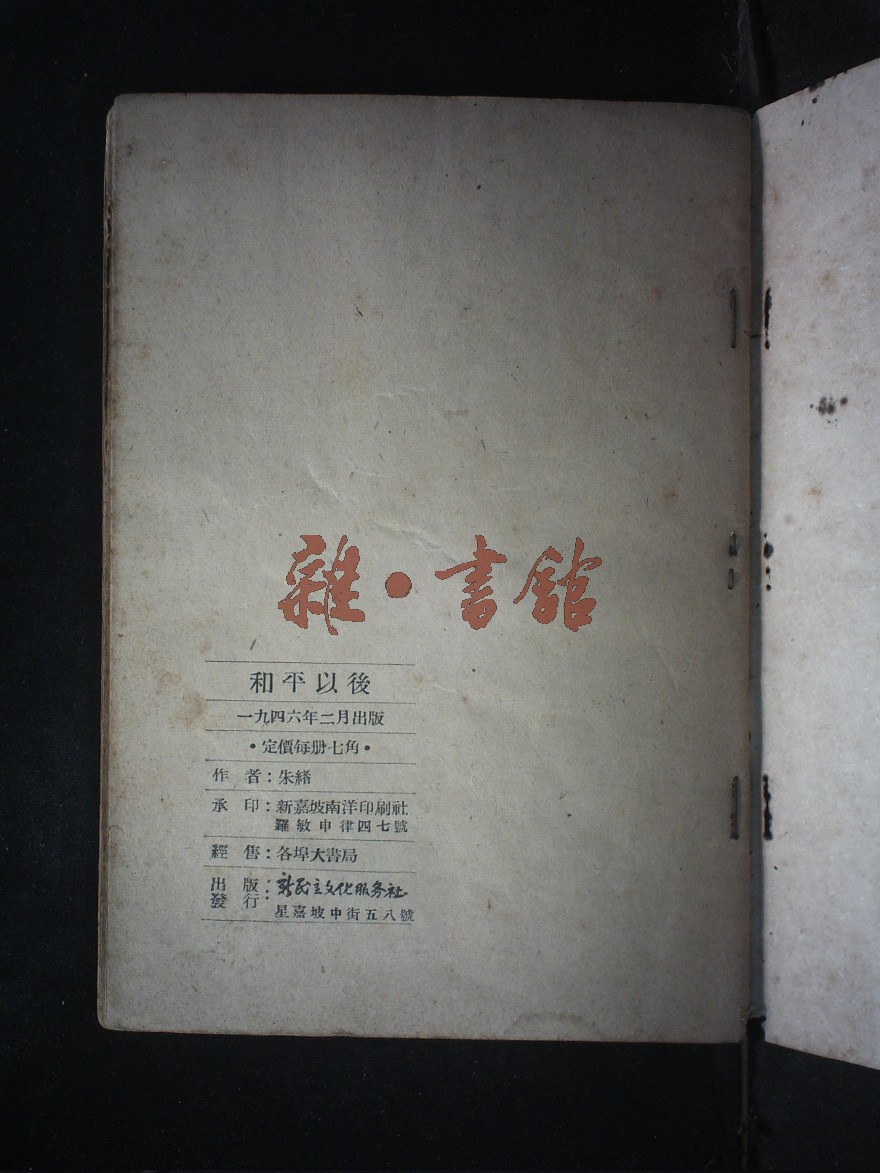 雜•書館
和平以後
一九四六年二月出版
•定價每册七角•
作者：朱緒
承印：新嘉坡南洋印刷社
羅敏申律四七號
經售：各埠大書局
出版：新民主文化服务社
發行：
星嘉坡中街五八號